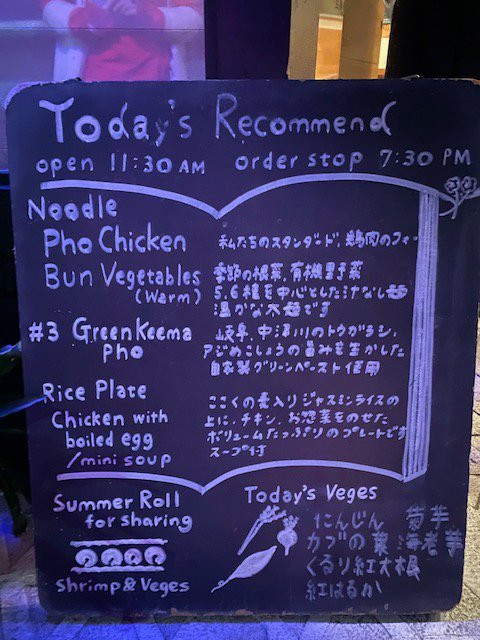 Today's Recommend
open 11:30 AM order stop 7:30 PM
Noodle
Pho Chicken 私たちのスタンダード、鶏肉のフォー
Bun Vegetables 季節の根菜、有機野菜
(Warm) 5,6種を中心とした汁なし麺
温かな大麺です
#3 Green Keema 岐阜、中津川のトウガラシ、
Pho アジめこしょうの旨みを生かした
自家製グリーンペースト使用
Rice Plate ここくの素入りジャスミンライスの
Chicken with 上に、チキン、お惣菜をのせた
boiled egg ボリュームたっぷりのプレートです
/mini soup スープ付
Summer Roll
for sharing
Shrimp & Veges
Today's Veges
にんじん 菊芋
カブの葉 海老芋
くるり紅大根
紅はるか